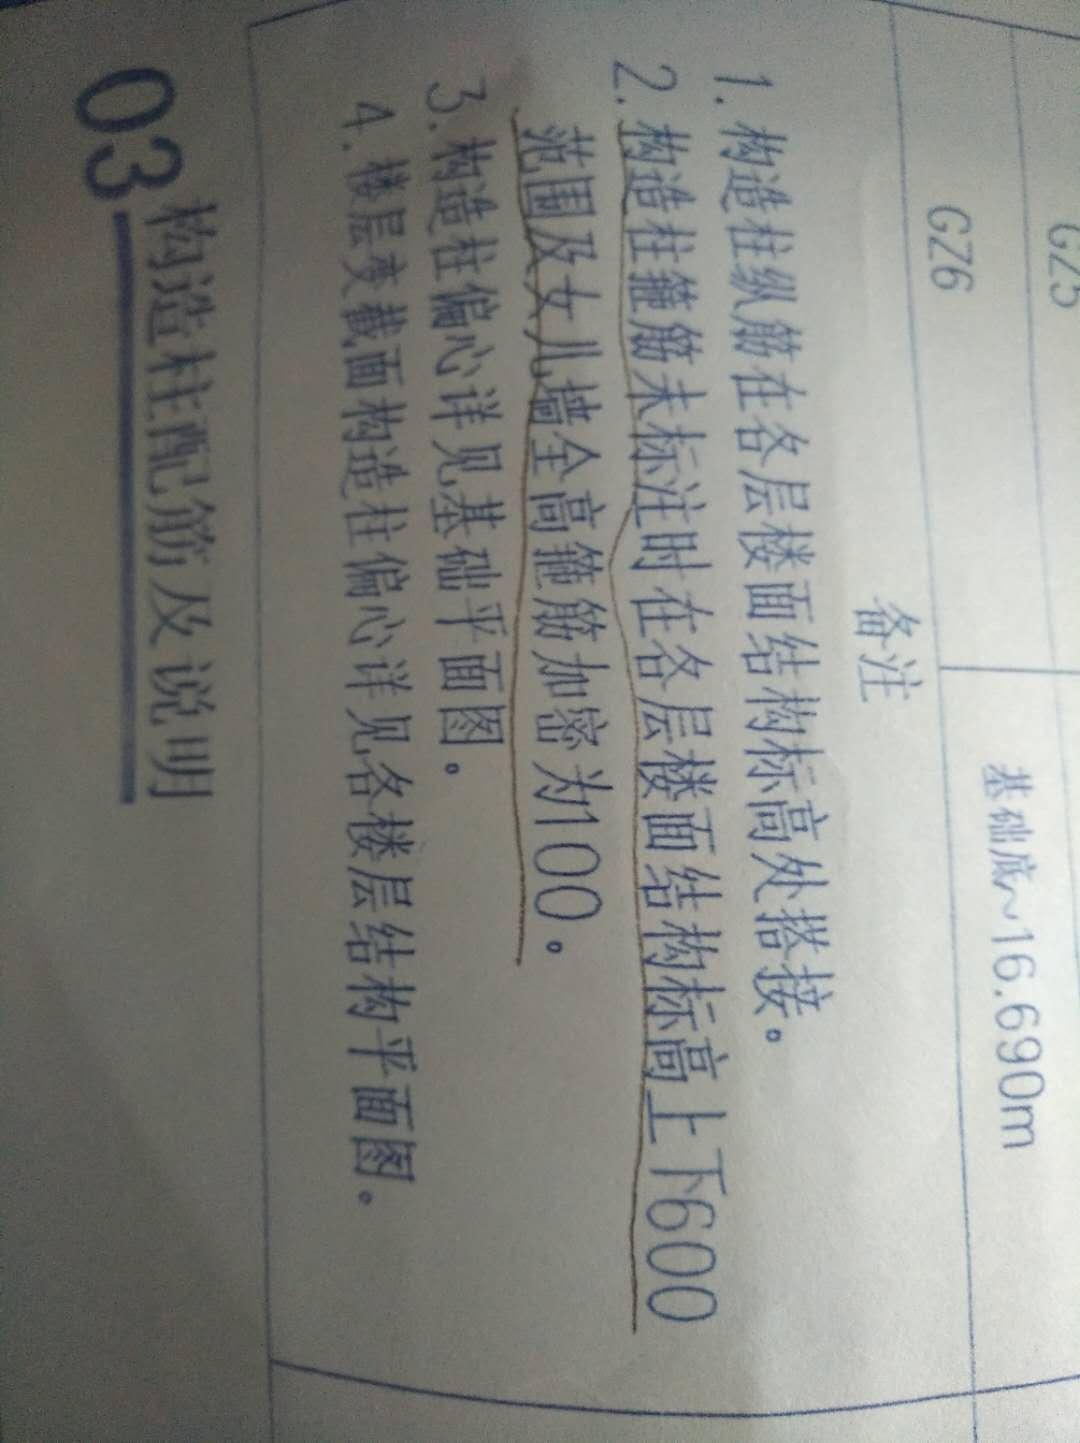 GZ5
GZ6
基础底~16.690m
备注
1.构造柱纵筋在各层楼面结构标高处搭接。
2.构造柱箍筋未标注时在各层楼面结构标高上下600
范围及女儿墙全高箍筋加密为100。
3.构造柱偏心详见基础平面图。
4.楼层变截面构造柱偏心详见各楼层结构平面图。
03 构造柱配筋及说明